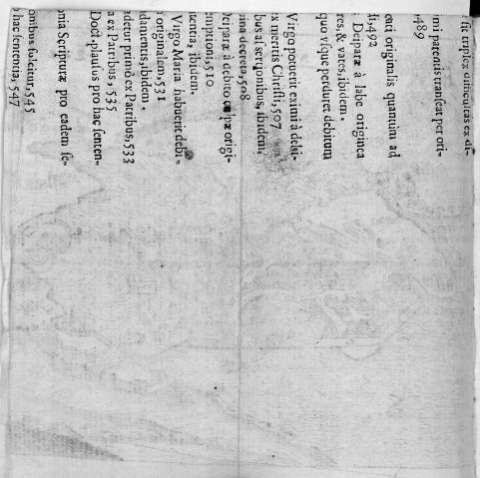 sit triplex difficultas ex di-
mi parentis transeat per ori-
,489
ccati originalis quantùm ad
st,492
Deiparæ à labe originea
res,& vates,ibidem.
quo vsque perduret debitum
Virgo potuerit eximi à debi-
ex meritis Christi,507
bus assertionibus, ibidem,
ina decreta,508
Deiparæ à debito culpæ origi-
umption,510
tentia, ibidem.
Virgo Maria habuerit debi-
originalem,531
damentis,ibidem.
adetur primò ex Patribus,533
a ex Patribus,535
Doct. plausus pro hac senten-
onia Scripturæ pro eadem se-
onibus fulcitur,545
hac sententia, 547